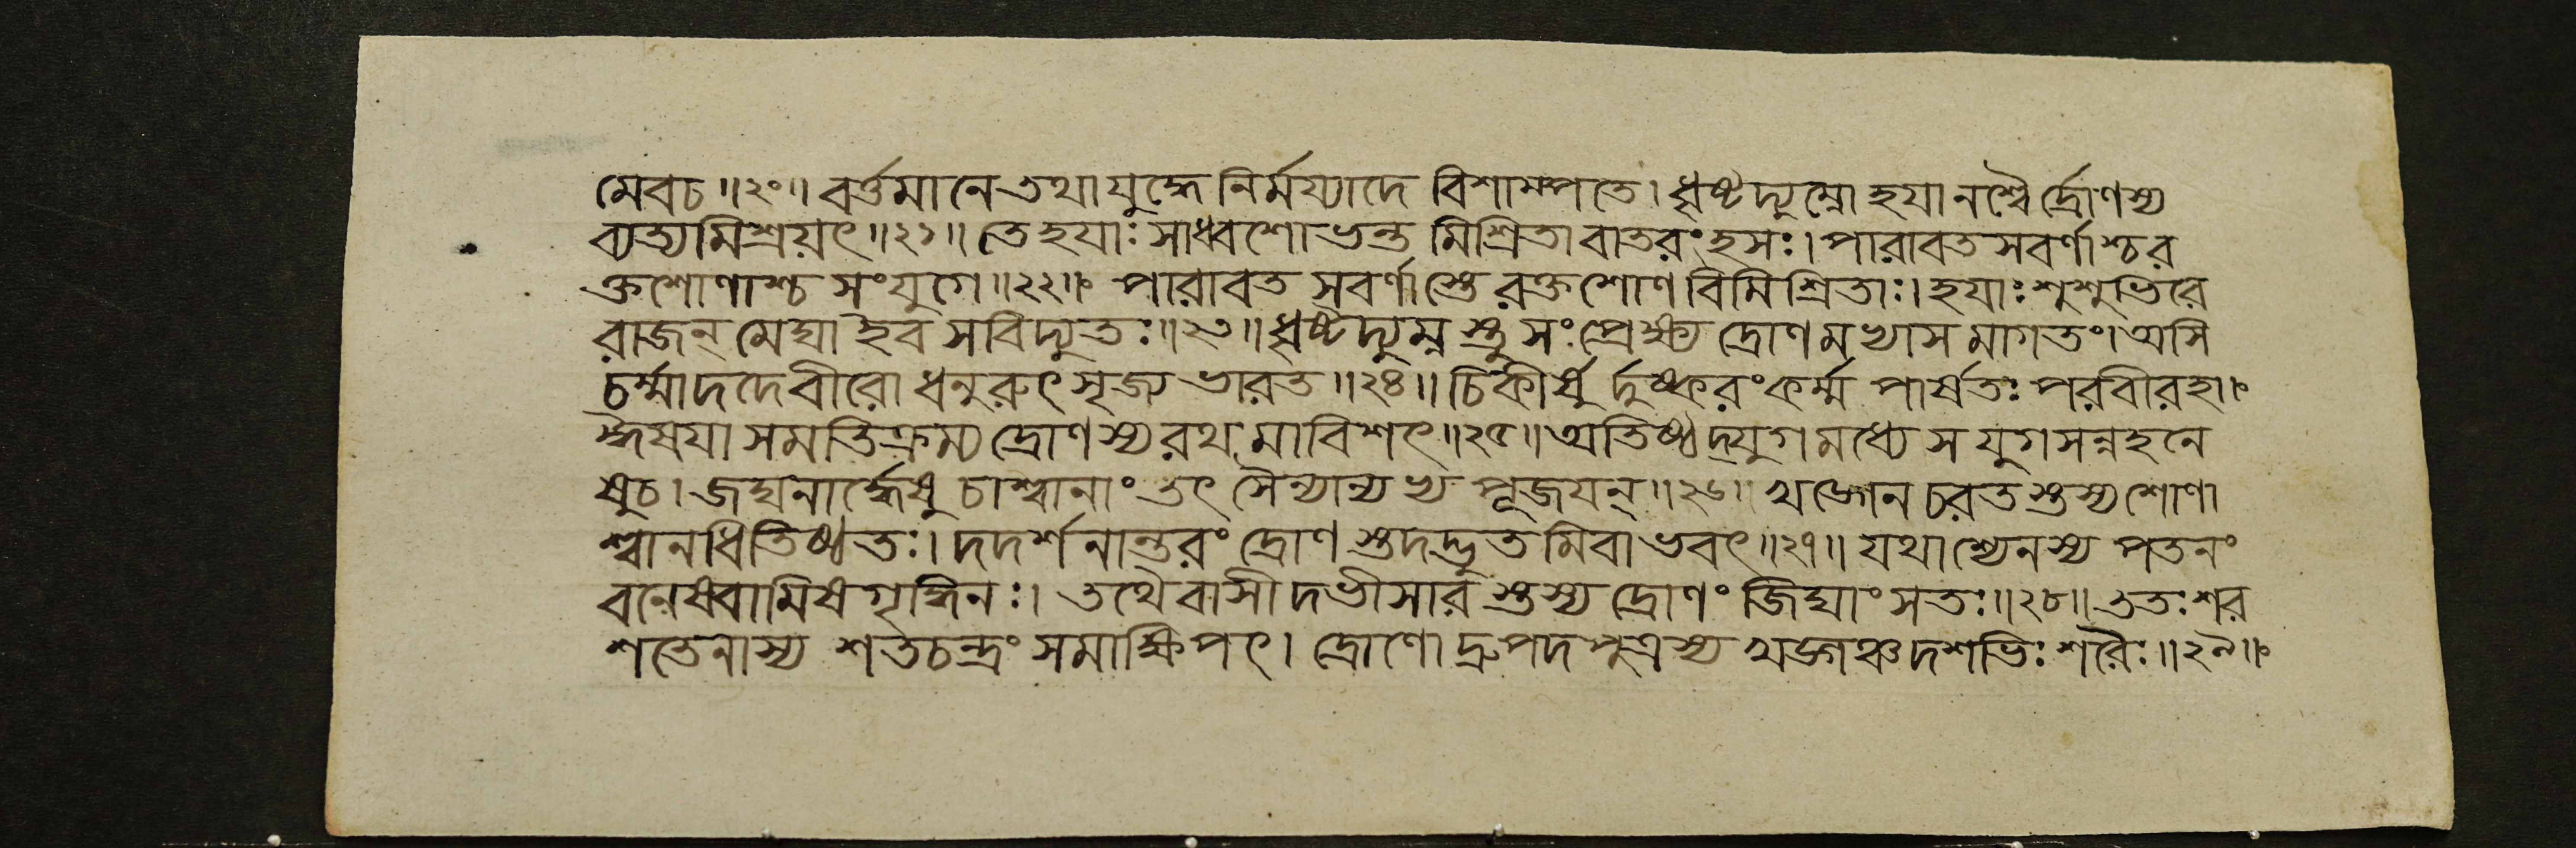 মেবচ॥২০॥বর্ত্তমানেতথাযুদ্ধে নির্ময্যাদে বিশাম্পতে।ধৃষ্টদ্যুম্নোহযানশ্বৈর্দ্রোণস্য
ব্যত্যমিশ্রয়ৎ॥২১॥তেহযাঃসাধ্বশোভন্ত মিশ্রিতাবাতরংহসঃ।পারাবতসবর্ণাশ্চর
ক্তশোণাশ্চ সংযুগে॥২২॥ পারাবত সবর্ণাস্তে রক্তশোণবিমিশ্রিতাঃ।হযাঃশুশুভিরে
রাজন্ মেঘাইব সবিদ্যুতঃ॥২৩॥ধৃষ্টদ্যুম্নস্তুসংপ্রেক্ষ্য দ্রোণমভ্যাসমাগতং।অসি
চর্ম্মাদদেবীরোধনুরুৎসৃজ্য ভারত॥২৪॥চিকীর্ষুর্দুষ্করংকর্ম্ম পার্ষতঃ পরবীরহা।
ঈষযাসমতিক্রম্য দ্রোণস্যরথমাবিশৎ॥২৫॥অতিষ্ঠদ্যুগমধ্যেসযুগসন্নহনে
ষুচ।জঘনার্দ্ধেষুচাশ্বানাং তৎসৈন্যান্যভ্যপূজযন্॥২৬॥খড্গেনচরতস্তস্যশোণা
শ্বানধিতিষ্ঠতঃ।দদর্শনান্তরং দ্রোণস্তদদ্ভুতমিবাভবৎ॥২৭॥যথাশ্যেনস্য পতনং
বনেষ্বামিষগৃদ্ধিনঃ।তথৈবাসীদভীসারস্তস্য দ্রোণং জিঘাংসতঃ॥২৮॥ততঃশর
শতেনাস্য শতচন্দ্রং সমাক্ষিপৎ।দ্রোণো দ্রুপদপুত্রস্য খড্গঞ্চদশভিঃশরৈঃ॥২৯॥